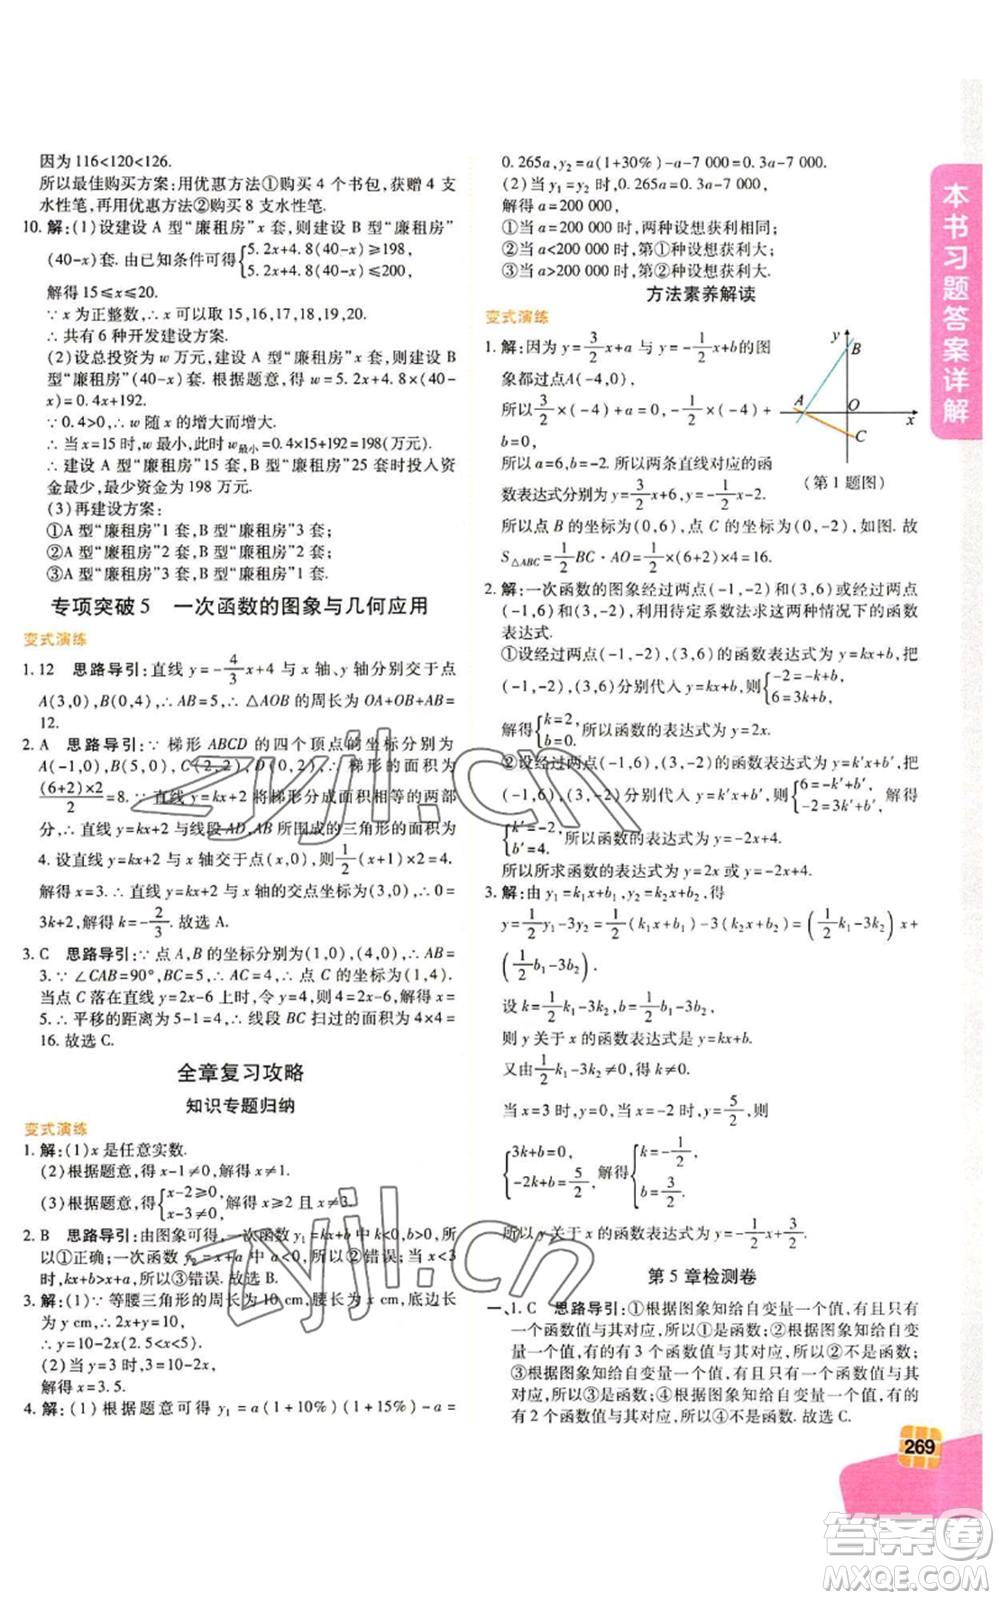 因为 116<120<126.
所以最佳购买方案:用优惠方法①购买 4 个书包,获赠 4 支
水性笔,再用优惠方法②购买 8 支水性笔.
10. 解:(1)设建设 A 型“廉租房”x 套,则建设 B 型“廉租房”
(40-x)套. 由已知条件可得{5.2x+4.8(40-x)≥198,
5.2x+4.8(40-x)≤200,
解得 15≤x≤20.
∵ x 为正整数,∴ x 可以取 15,16,17,18,19,20.
∴ 共有 6 种开发建设方案.
(2)设总投资为 w 万元,建设 A 型“廉租房”x 套,则建设 B
型“廉租房”(40-x)套. 根据题意,得 w=5.2x+4.8(40-
x)=0.4x+192.
∵ 0.4>0,∴ w 随 x 的增大而增大.
∴ 当 x=15 时,w 最小,此时 w最小=198(万元).
∴ 建设 A 型“廉租房”15 套,B 型“廉租房”25 套时投入资
金最少,最少资金为 198 万元.
(3)再建设方案:
①A 型“廉租房”1 套,B 型“廉租房”3 套;
②A 型“廉租房”2 套,B 型“廉租房”2 套;
③A 型“廉租房”3 套,B 型“廉租房”1 套.
专项突破 5 一次函数的图象与几何应用
变式演练
1. 12 思路导引:直线 y=-4/3x+4 与 x 轴、y 轴分别交于点
A(3,0),B(0,4),∴ AB=5,∴ △AOB 的周长为 OA+OB+AB=
12.
2. A 思路导引:∵ 梯形 ABCD 的四个顶点的坐标分别为
A(-1,0),B(5,0),C(2,2),D(0,2),∴ 梯形的面积为
(6+2)×2/2=8. ∵ 直线 y=kx+2 将梯形分成面积相等的两部
分,∴ 直线 y=kx+2 与线段 AD,AB 所围成的三角形的面积为
4. 设直线 y=kx+2 与 x 轴交于点(x,0),则1/2(x+1)×2=4.
解得 x=3. ∴ 直线 y=kx+2 与 x 轴的交点坐标为(3,0),∴ 0=
3k+2,解得 k=-2/3. 故选 A.
3. C 思路导引:∵ 点 A,B 的坐标分别为(1,0),(4,0),∴ AB=
3. ∵ ∠CAB=90°,BC=5,∴ AC=4. ∴ 点 C 的坐标为(1,4).
当点 C 落在直线 y=2x-6 上时,令 y=4,得到 4=2x-6,解得 x=
5. ∴ 平移的距离为 5-1=4,∴ 线段 BC 扫过的面积为 4×4=
16. 故选 C.
全章复习攻略
知识专题归纳
变式演练
1. 解:(1)x 是任意实数.
(2)根据题意,得 x-1≠0,解得 x≠1.
(3)根据题意,得{x-2≥0,
x-3≠0,解得 x≥2 且 x≠3.
2. B 思路导引:由图象可得,一次函数 y₁=kx+b 中 k<0,b>0,
所以①正确;一次函数 y₂=x+a 中 a<0,所以②错误;当 x<3
时,kx+b>x+a,所以③错误. 故选 B.
3. 解:(1)∵ 等腰三角形的周长为 10 cm,腰长为 x cm,底边长
为 y cm,∴ 2x+y=10,
∴ y=10-2x(2.5<x<5).
(2)当 y=3 时,即 10-2x=3,
解得 x=3.5.
4. 解:(1) 根据题意可得 y₁=a(1+10%)(1+15%)-a=
0.265a,y₂=a(1+30%)-a-7 000=0.3a-7 000.
(2)当 y₁=y₂ 时,0.265a=0.3a-7 000,
解得 a=200 000,
①当 a=200 000 时,两种设想获利相同;
②当 a<200 000 时,第①种设想获利大;
③当 a>200 000 时,第②种设想获利大.
方法素养解读
变式演练
1. 解:因为 y=3/2x+a 与 y=-1/2x+b 的图
象都过点 A(-4,0),
所以3/2×(-4)+a=0,-1/2×(-4)+
b=0,
所以 a=6,b=-2. 所以两条直线对应的函
数表达式分别为 y=3/2x+6,y=-1/2x-2,
所以点 B 的坐标为(0,6),点 C 的坐标为(0,-2),如图. 故
S△ABC=1/2BC·AO=1/2×(6+2)×4=16.
y
B
A
O
x
C
(第 1 题图)
2. 解:一次函数的图象经过两点(-1,-2)和(3,6)或经过两点
(-1,6)和(3,-2),利用待定系数法求这两种情况的函数
表达式.
①设经过两点(-1,-2),(3,6)的函数表达式为 y=kx+b,把
(-1,-2),(3,6)分别代入 y=kx+b,则{-2=-k+b,
6=3k+b,
解得{k=2,
b=0.所以函数的表达式为 y=2x.
②设经过两点(-1,6),(3,-2)的函数表达式为 y=k′x+b′,
把(-1,6),(3,-2)分别代入 y=k′x+b′,则{6=-k′+b′,
-2=3k′+b′, 解得
{k′=-2,
b′=4,所以函数的表达式为 y=-2x+4.
所以所求函数的表达式为 y=2x 或 y=-2x+4.
3. 解:由 y₁=k₁x+b₁,y₂=k₂x+b₂,得
y=1/2y₁-3y₂=1/2(k₁x+b₁)-3(k₂x+b₂)=(1/2k₁-3k₂)x+
(1/2b₁-3b₂).
设 k=1/2k₁-3k₂,b=1/2b₁-3b₂,
则 y 关于 x 的函数表达式为 y=kx+b.
又由1/2k₁-3k₂<0,得 k<0.
当 x=3 时,y=0;当 x=-2 时,y=5/2,则
{3k+b=0,
-2k+b=5/2, 解得{k=-1/2,
b=3/2.
所以 y 关于 x 的函数表达式为 y=-1/2x+3/2.
第 5 章检测卷
一、1. C 思路导引:①根据图象知给自变量一个值,有且只有
一个函数值与其对应,所以①是函数;②根据图象知给自变
量一个值,有的有 3 个函数值与其对应,所以②不是函数;
③根据图象知给自变量一个值,有且只有一个函数值与其对
应,所以③是函数;④根据图象知给自变量一个值,有的
有 2 个函数值与其对应,所以④不是函数. 故选 C.
本书习题答案详解
269
zyjl.cn
zyjl.cn
答案圈
MXQE.COM